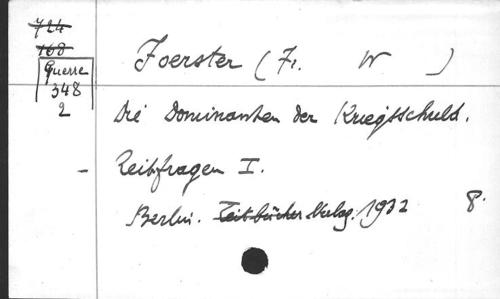 724
168
Guerre
348
2
Foerster (Fr. W )
Die Dominanten der Kriegsschuld.
- Zeitfragen I.
Berlin. Zeitbücher Verlag. 1932 8.